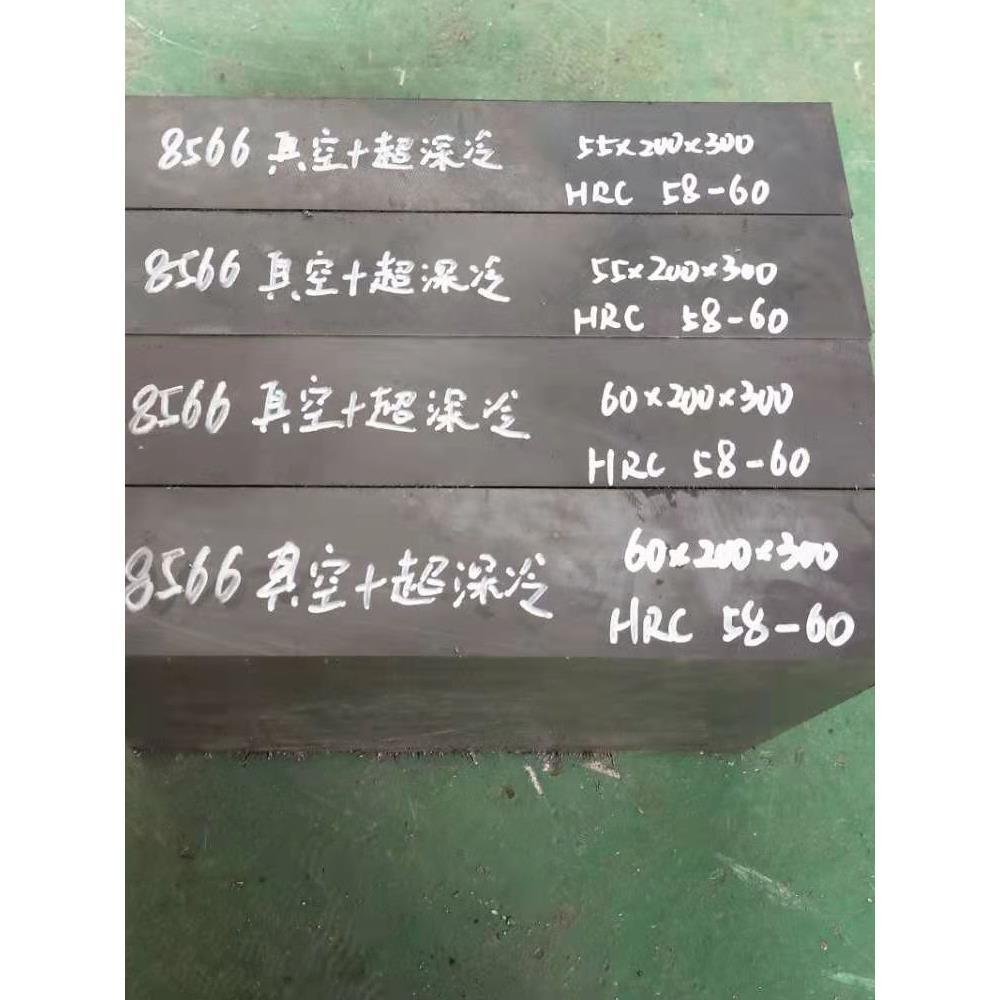 8566 真空+超深冷 55x200x300
HRC 58-60
8566 真空+超深冷 55x200x300
HRC 58-60
8566 真空+超深冷 60x200x300
HRC 58-60
8566 真空+超深冷 60x200x300
HRC 58-60